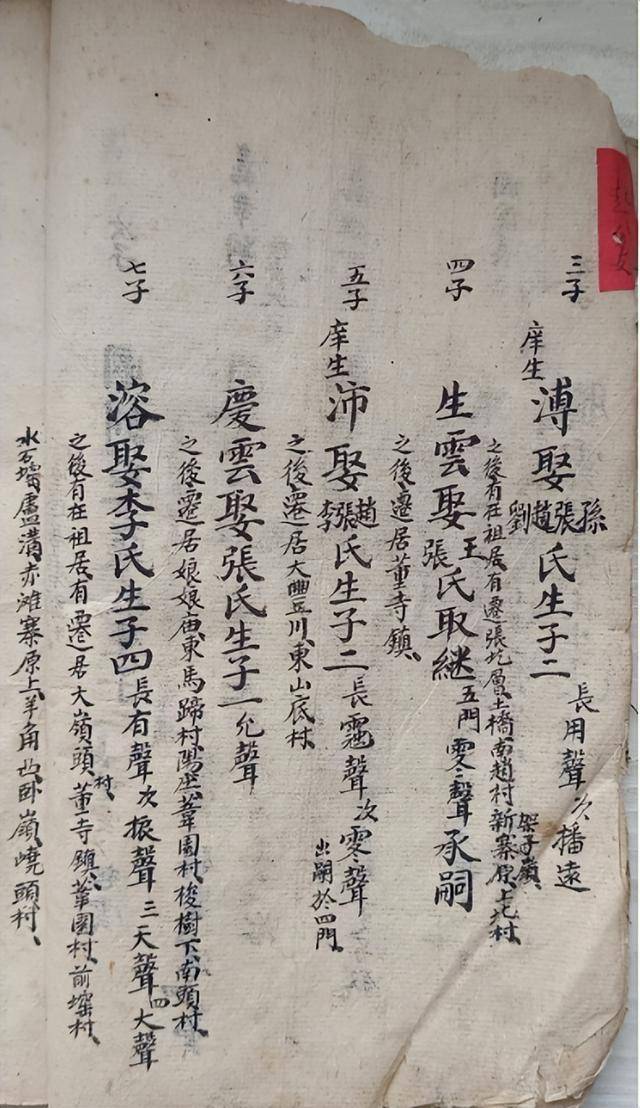 三子
庠生
溥娶孫張趙劉氏生子二 長用聲 次播遠
之後有在祖居、有遷張圪層、土橋、南趙村、新寨原、上北村、
架子嶺、
四子
生雲娶王張氏取継五門雯聲承嗣
之後遷居董寺鎮、
五子
庠生
沛娶趙張李氏生子二 長聲 次雯聲
出嗣於四門、
之後遷居大豐川、東山底村、
六子
慶雲娶張氏生子一允聲
之後遷居娘娘庙、東馬蹄村、陽坐、葦園村、梭樹下、南頭村、
七子
溶娶李氏生子四 長有聲 次振聲 三天聲 四大聲
之後有在祖居、有遷居大嶺頭村、董寺鎮、葦園村、前村、
水、盧潢、赤滩寨原上、羊角凹、卧嶺、嶢頭村、